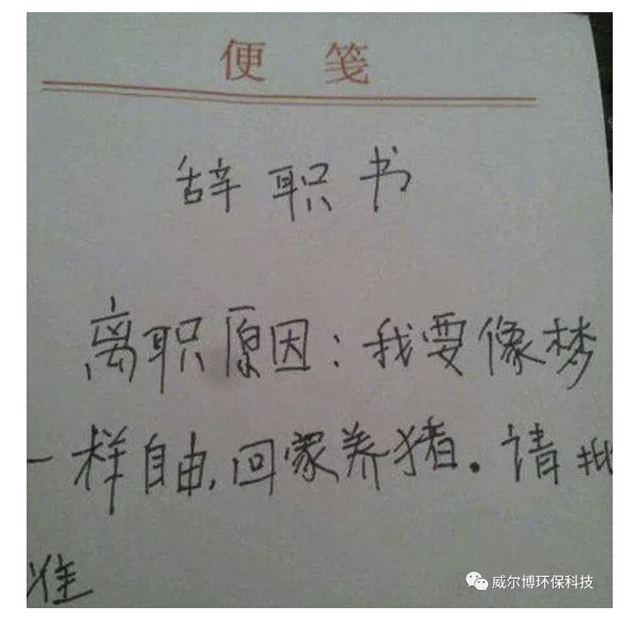 便 笺
辞职书
离职原因：我要像梦
一样自由,回家养猪。请批
准
威尔博环保科技